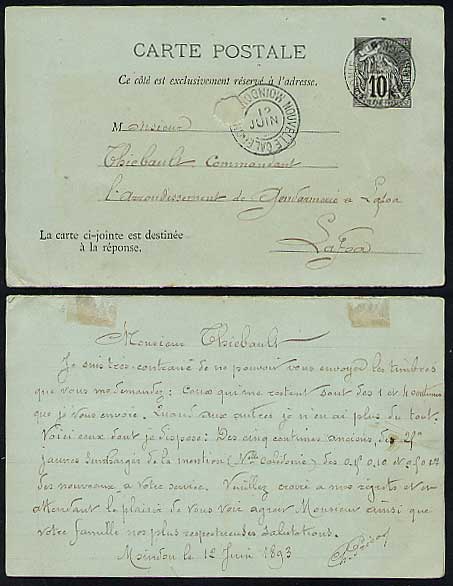 CARTE POSTALE
Ce côté est exclusivement réservé à l'adresse.
10
MOINDOU NOUVELLE CALÉDONIE
12
JUIN
Monsieur
Thiebault Commandant
l'arrondissement de Gendarmerie à Lafoa
Lafoa
La carte ci-jointe est destinée
à la réponse.
Monsieur Thiebault
Je suis très contrarié de ne pouvoir vous envoyer les timbres
que vous me demandez: Ceux qui me restent sont des 1 et 4 centimes
que je vous envoie. Quand aux autres je n'en ai plus du tout.
Voici ceux dont je dispose: Des cinq centimes anciens, des
jaunes surchargés de la mention (Nlle Calédonie) des
des nouveaux à votre service. Veuillez croire à mes regrets et en
attendant le plaisir de vous voir agréer Monsieur ainsi que
votre famille nos plus respectueuses salutations.
Moindou le 12 Juin 1893